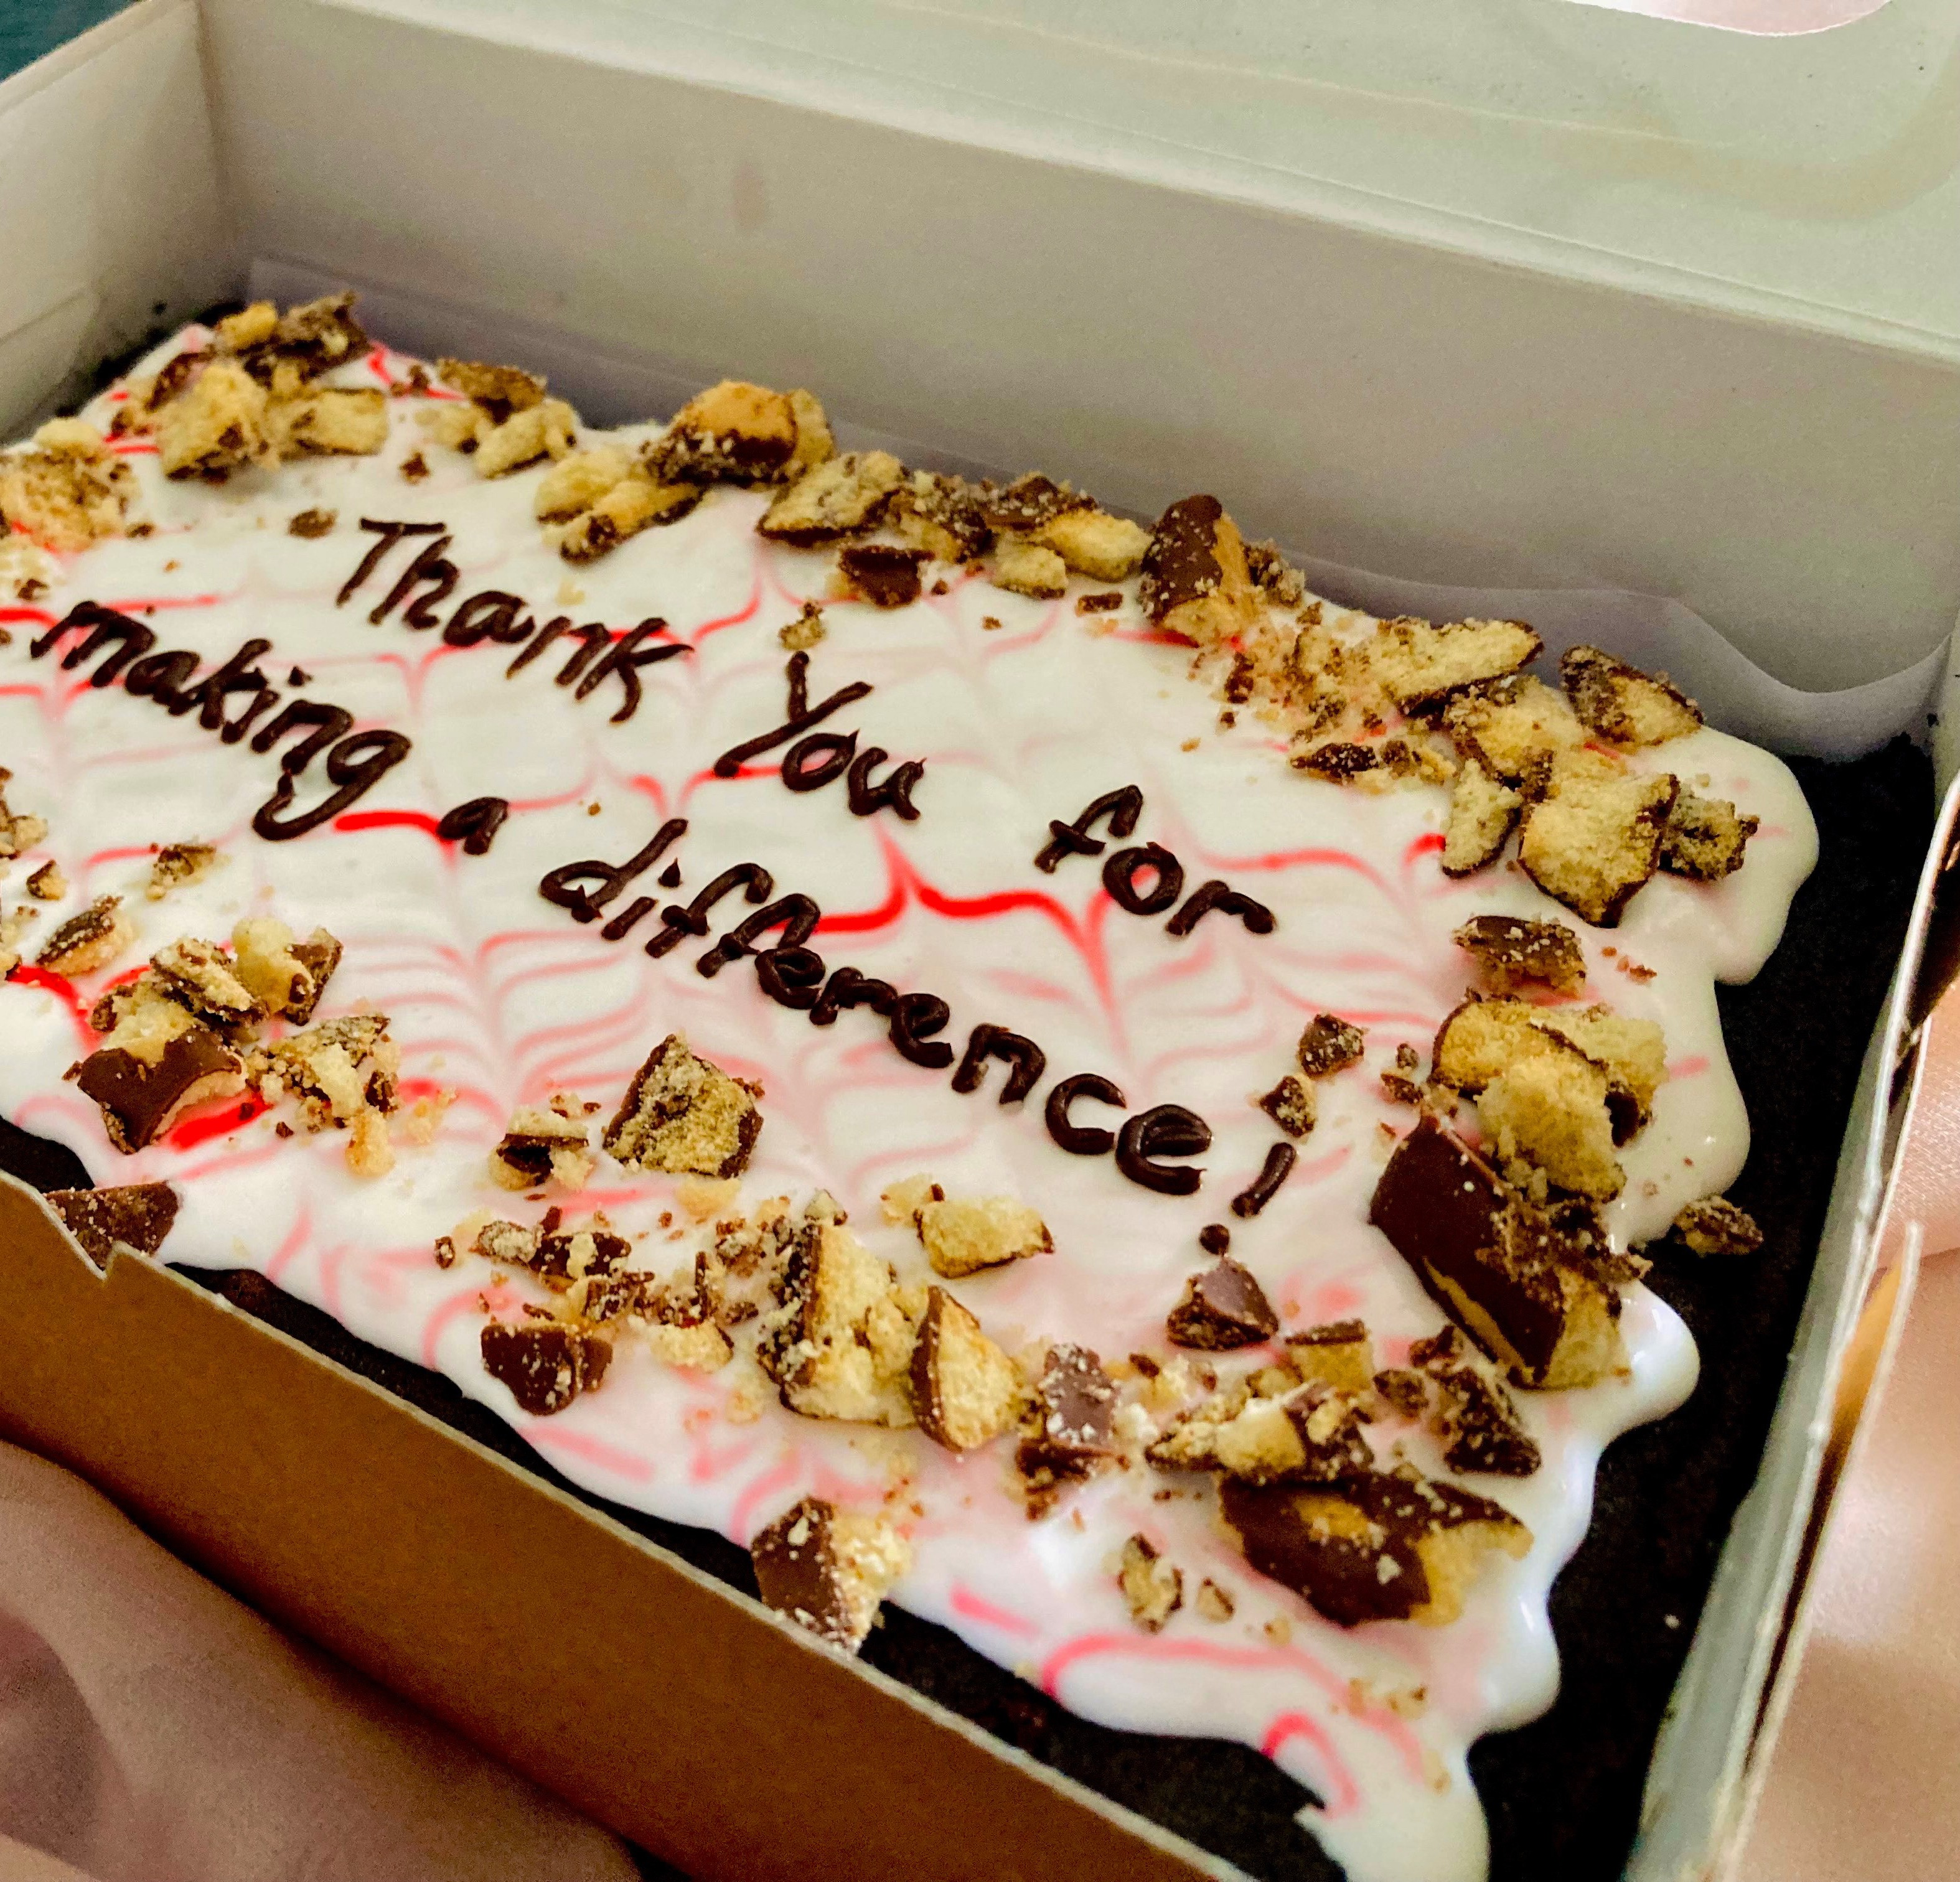 Thank You for
making a difference!